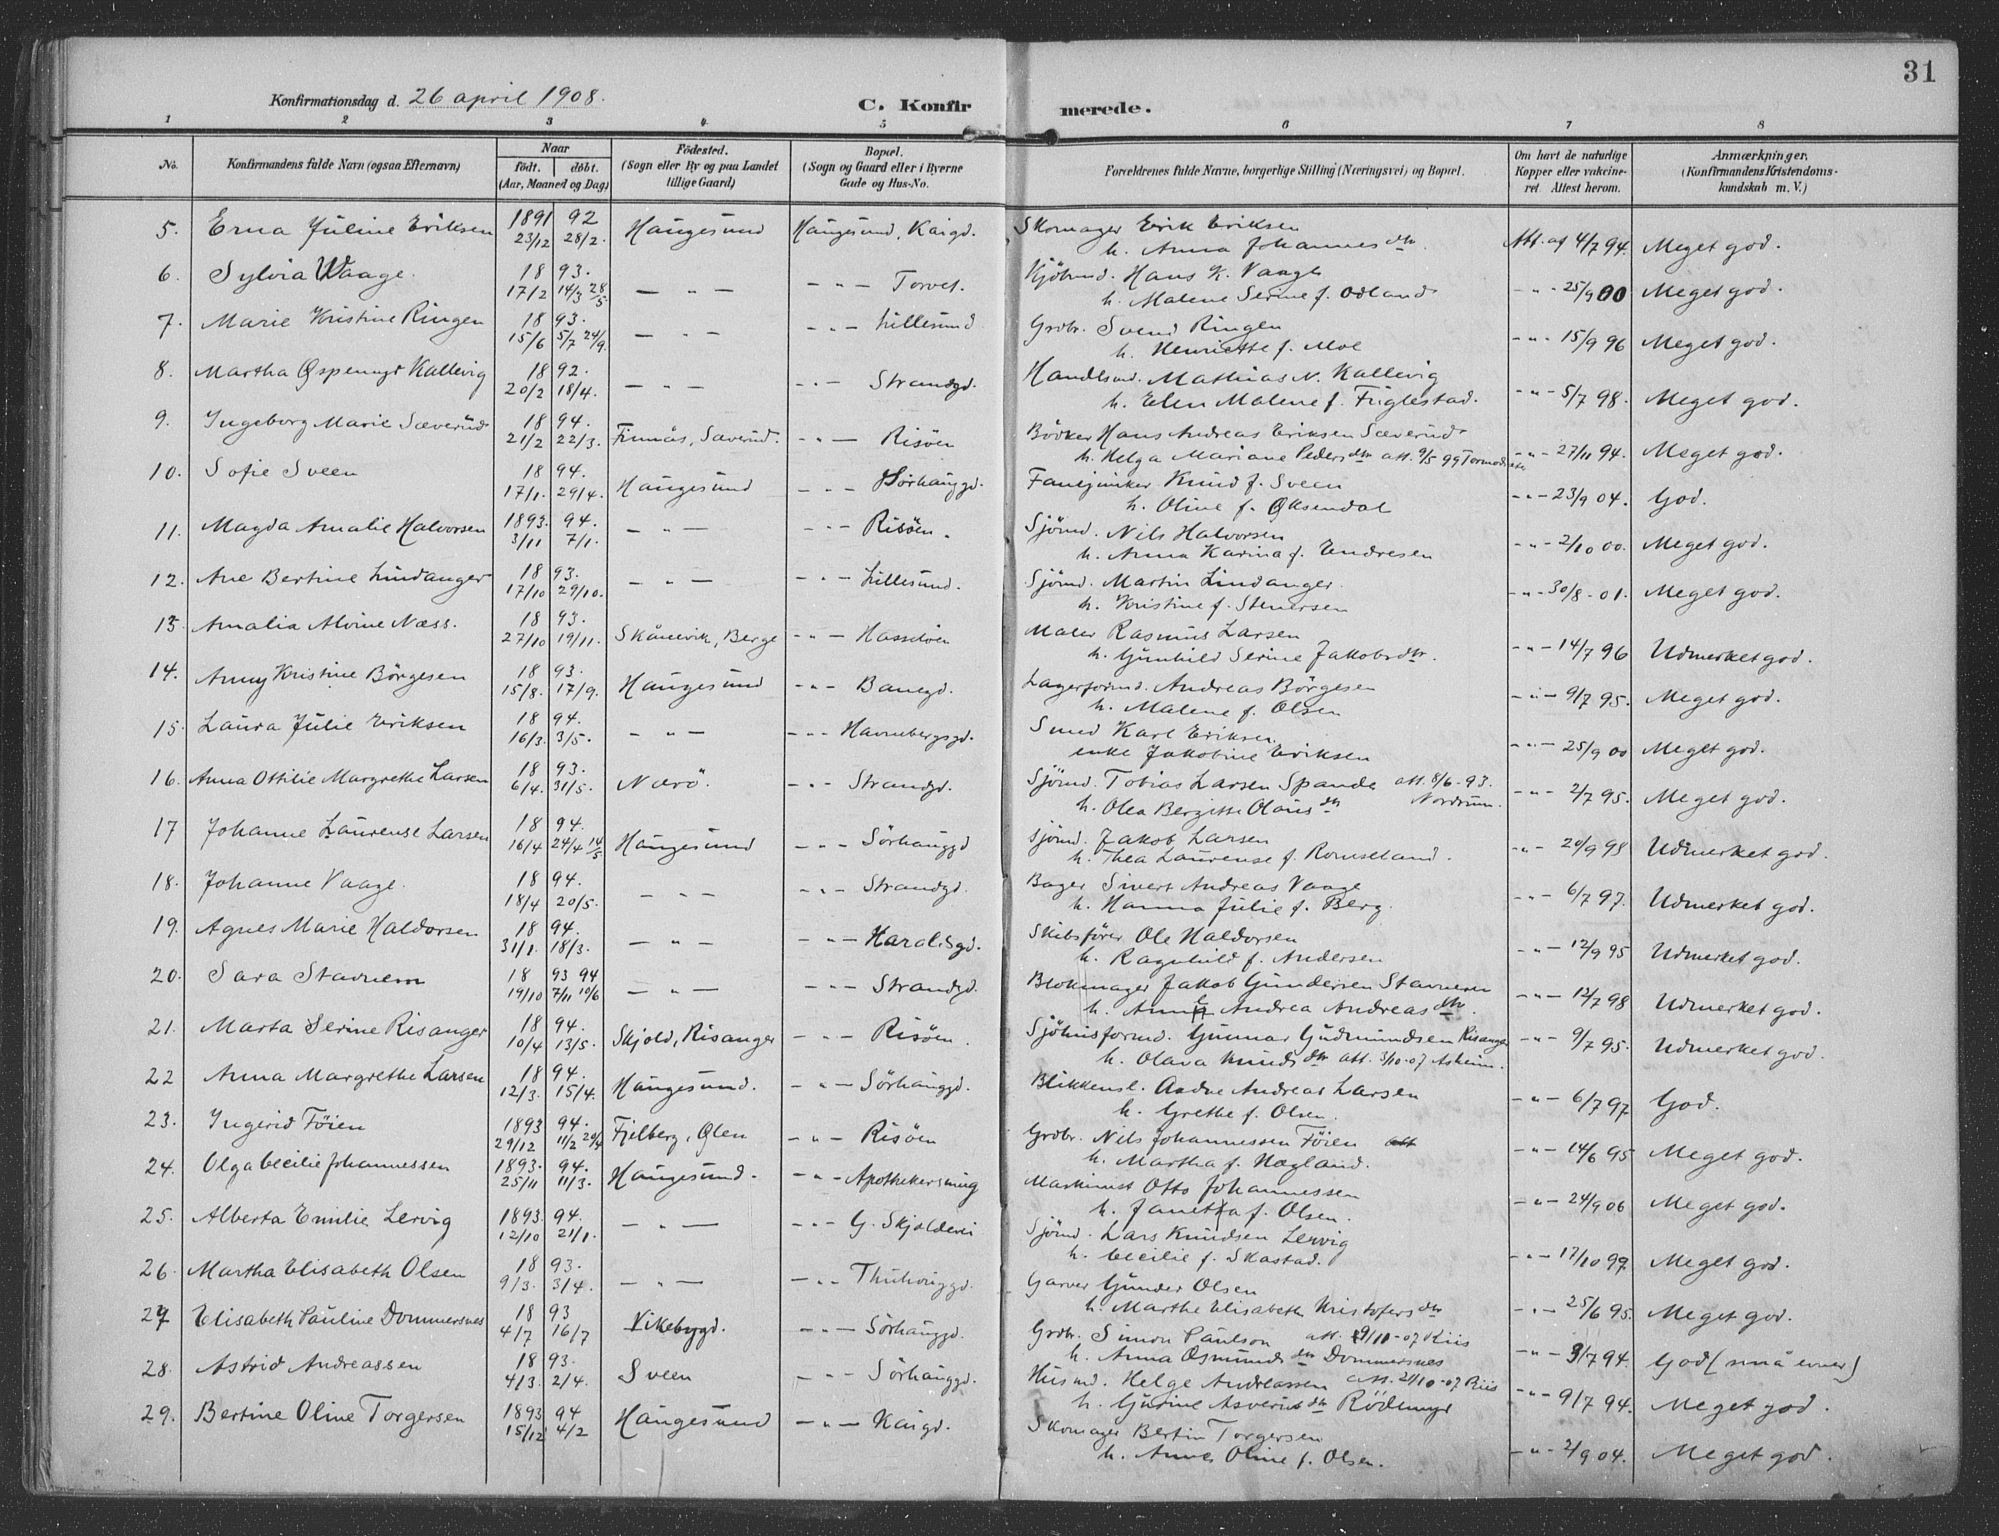 31
Konfirmationsdag d. 26 april 1908.
C. Konfirmerede.
1 2 3 4 5 6 7 8
No. Konfirmandens fulde Navn (ogsaa Efternavn) Naar födt. döbt. (Aar, Maaned og Dag) Födested. (Sogn eller By og paa Landet tillige Gaard) Bopæl. (Sogn og Gaard eller i Byerne Gade og Hus-No. Forældrenes fulde Navne, borgerlige Stilling (Næringsvei) og Bopæl. Om havt de naturlige Kopper eller vakcineret. Attest herom. Anmærkninger, (Konfirmandens Kristendomskundskab m. V.)
5. Erna Juline Eriksen 1891 92 Haugesund Haugesund, Kaigd. Skomager Erik Eriksen
23/12 28/2. h. Anna Johannesdtr. Att. af 4/7 94. Meget god.
6. Sylvia Waage. 18 93. — " — - " - Torvet. Kjöbmd. Hans K. Vaage
17/2 14/3 28/5 h. Malene Serine f. Odland - " - 25/9 00 Meget god.
7. Marie Kristine Ringen 18 93. — " — - " - Lillesund Grdbr. Svend Ringen
15/6 5/7 24/9. h. Henriette f. Moe - " - 15/9 96 Meget god.
8. Martha Øspemyr Kallevig 18 92. — " — - " - Strandgd. Handlsmd. Mathias N. Kallevig
20/2 18/4. h. Elen Malene f. Fuglestad. - " - 5/7 98. Meget god.
9. Ingeborg Marie Sæverud 18 94. Finnås, Sæverud. - " - Risöen Bödker Hans Andreas Eriksen Sæverud
21/2 22/3. h. Helga Mariane Pedersdtr att. 9/5 99 - " - 27/11 94. Meget god.
10. Sofie Sveen 18 94. Haugesund - " - Sörhauggd. Fanejunker Knud f. Sveen
17/1. 29/4. h. Oline f. Øksendal - " - 23/9 04. God.
11. Magda Amalie Halvorsen 1893. 94. — " — - " - Risöen. Sjömd. Nils Halvorsen
3/11 7/1. h. Anna Karina f. Endresen - " - 2/10 00. Meget god.
12. Ane Bertine Lindanger 18 93. — " — - " - Lillesund. Sjömd. Martin Lindanger.
17/10 29/10. h. Kristine f. Stenersen - " - 30/8 - 01. Meget god.
13. Amalia Alvine Næss. 18 93. Skånevik, Berge - " - Hasselöen Maler Rasmus Larsen
27/10 19/11. h. Gunhild Serine Jakobsdtr. - " - 14/7 96 Udmerket god.
14. Anny Kristine Börgesen 18 93. Haugesund - " - Banegd. Lagerformd. Andreas Börgesen
15/8. 17/9. h. Malene f. Olsen - " - 9/7 95. Meget god.
15. Laura Julie Eriksen 18 94. — " — - " - Havnebergsgd. Smed Karl Eriksen
16/3. 3/5. enke Jakobine Eriksen - " - 25/9 00 Meget god.
16. Anna Ottilie Margrethe Larsen 18 93. Nærö. - " - Strandgd. Sjömd. Tobias Larsen Spande att. 8/6 - 93.
6/4. 31/5. h. Olea Bergitte Olausdtr Nordrum. - " - 2/7 95. Meget god.
17 Johanne Laurense Larsen 18 94. Haugesund - " - Sörhauggd Sjömd. Jakob Larsen
16/4 24/4 14/5 h. Thea Laurense f. Romseland. - " - 20/9 98 Udmerket god.
18. Johanne Vaage. 18 94. — " — - " - Strandgd. Bager Sivert Andreas Vaage
18/4 20/5. h. Hanna Julie f. Berg. - " - 6/7 97. Udmerket god.
19. Agnes Marie Haldorsen 18 94. — " — - " - Haraldsgd. Skibsförer Ole Haldorsen
31/1. 18/3. h. Ragnhild f. Andersen - " - 12/9 95 Udmerket god.
20. Sara Stavnem 18 93 94 — " — - " - Strandgd. Blokmager Jakob Gundersen Stavnem
19/10 7/11 10/6 h. Anna Andrea Andreasdtr. - " - 12/7 98 Udmerket god.
21. Marta Serine Risanger 18 94. Skjold, Risanger - " - Risöen. Sjöhusformd. Gunnar Gudmundsen Risanger
10/4 13/5. h. Olava Knudsdtr att. 3/10 - 07 Askeim. - " - 9/7 95. Udmerket god.
22 Anna Margrethe Larsen 18 94. Haugesund. - " - Sörhauggd. Blikkensl. Aadne Andreas Larsen
12/3. 15/4. h. Grethe f. Olsen. - " - 6/7 97 God.
23. Ingerid Töien 1893 94. Fjelberg, Ølen - " - Risöen Grdbr. Nils Johannessen Töien att
29/12 11/2 h. Martha f. Hægland. - " - 14/6 95 Meget god.
24. Olga Cecilie Johannessen 1893. 94. Haugesund. - " - Apothekersmug Maskinist Otto Johannessen
25/11 11/3. h. Janetta f. Olsen. - " - 24/9 06 Meget god.
25. Alberta Emilie Lervig 1893. 94. — " — - " - G. Skjoldevei Sjömd. Lars Knudsen Lervig
12/10 21/1. h. Cecilie f. Skastad. - " - 17/10 99. Meget god.
26. Martha Elisabeth Olsen 18 93. — " — - " - Thuhauggd. Garver Gunder Olsen
9/3. 3/4. h. Marthe Elisabeth Kristofersdtr - " - 25/6 95. Meget god.
27 Elisabeth Pauline Dommersnes 18 93 Vikebygd. - " - Sörhauggd. Grdbr. Simon Paulson att. 9/10 - 07 Riis
4/7 16/7 h. Anna Osmundsdtr Dommersnes - " - 3/7 94. God (små evner)
28. Astrid Andreassen 18 93. Sveen - " - Sörhauggd. Husmd. Helge Andreassen att. 21/10 - 07 Riis
4/3. 2/4. h. Gurine Asveriusdtr Rödemyr - " - 9/7 94. Meget god.
29. Bertine Oline Torgersen 1893 94 Haugesund - " - Kaigd. Skomager Bertin Torgersen
15/12 4/2 h. Anne Oline f. Olsen. - " - 2/9 04. Meget god